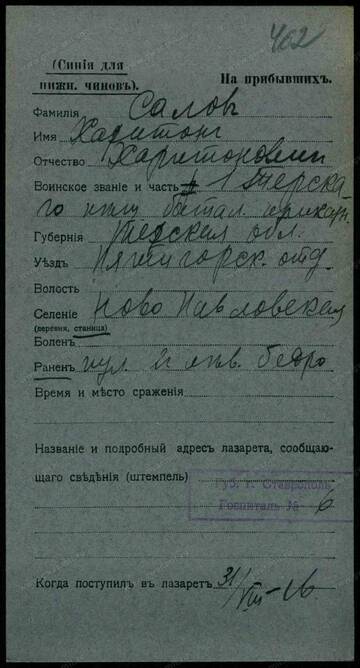 402
(Синія для
нижн. чиновъ).
На прибывшихъ.
Фамилия Саловъ
Имя Харитонъ
Отчество Харитоновичъ
Воинское званіе и часть 1 Терска-
го плас. батал. приказн.
Губернія Терская обл.
Уѣздъ Пятигорск. отд.
Волость
Селеніе Ново Павловская
(деревня, станица)
Боленъ
Раненъ пул. бедро
Время и мѣсто сраженія
Названіе и подробный адресъ лазарета, сообщаю-
щаго свѣдѣнія (штемпель)
Губ. г. Ставрополь
Госпиталь № 6
Когда поступилъ въ лазаретъ 31/VIII-16